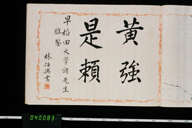 黄強
是頼
早稲田大学諸先生
雅鑒
林伯渠書
040083